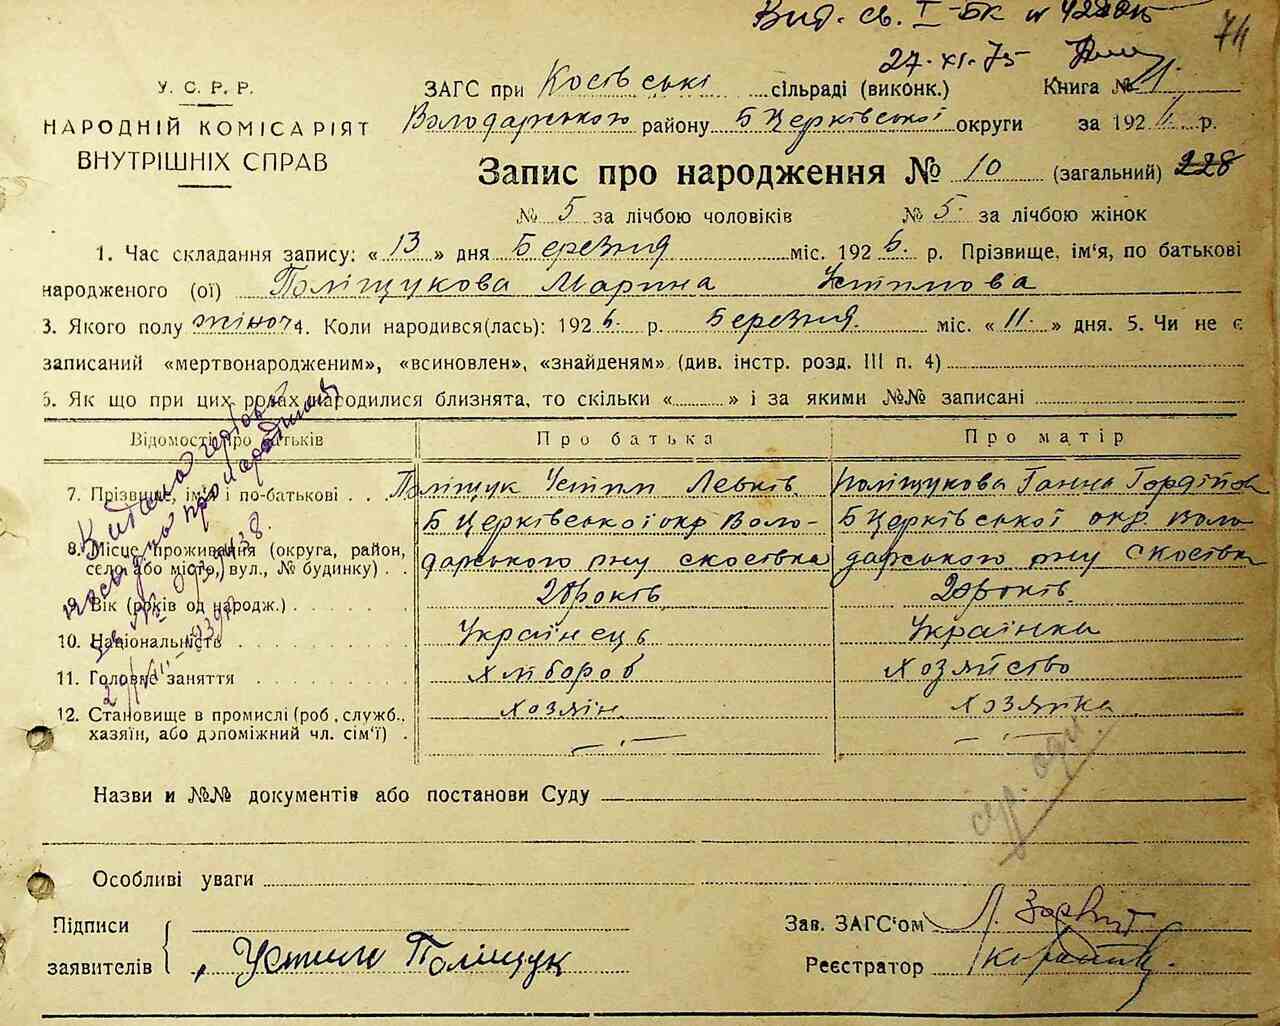 Вид. св. І-БК № 74
27.XI.75
У. С. Р. Р.
НАРОДНІЙ КОМІСАРІЯТ
ВНУТРІШНІХ СПРАВ
ЗАГС при Косівські сільраді (виконк.) Книга №
Володарською району БЦерківської округи за 192 р.
Запис про народження № 10 (загальний) 228
№ 5 за лічбою чоловіків № 5 за лічбою жінок
1. Час складання запису: « 13 » дня Березня міс. 1926. р. Прізвище, ім'я, по батькові
народженого (ої) Поліщукова Марина Устимова
3. Якого полу жіноч 4. Коли народився(лась): 1926. р. Березня. міс. « 11. » дня. 5. Чи не є
записаний «мертвонародженим», «всиновлен», «знайденям» (див. інстр. розд. III п. 4)
6. Як що при цих родах народилися близнята, то скільки « » і за якими №№ записані
Відомості про батьків Про батька Про матір
7. Прізвище, ім'я і по-батькові . . Поліщук Устим Левків. Поліщукова Ганна Гордійов
БЦерківської окр Воло- БЦерківської окр. Воло
8. Місце проживання (округа, район,
село або місто, вул., № будинку) . . дарського рну с Косівка дарського рну с Косівка
9. Вік (років од народж.) років років.
10. Національність Українець Українка
11. Головне заняття Хлібороб Хозяйство
12. Становище в промислі (роб., служб.,
хазяїн, або допоміжний чл. сім'ї) . Хозяін. Хозяйка
Назви и №№ документів або постанови Суду
Особливі уваги
Підписи
заявителів Устим Поліщук
Зав. ЗАГС'ом
Реєстратор